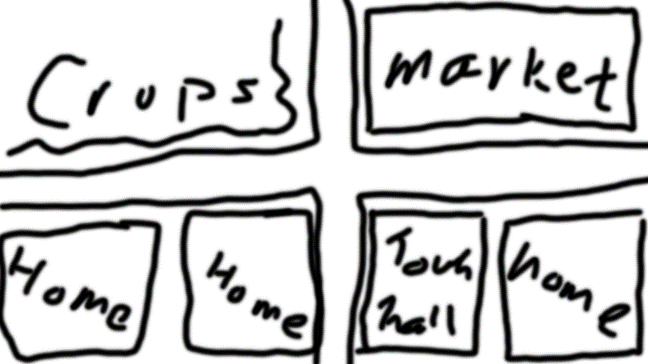 Crops
market
Home
Home
Town
hall
home